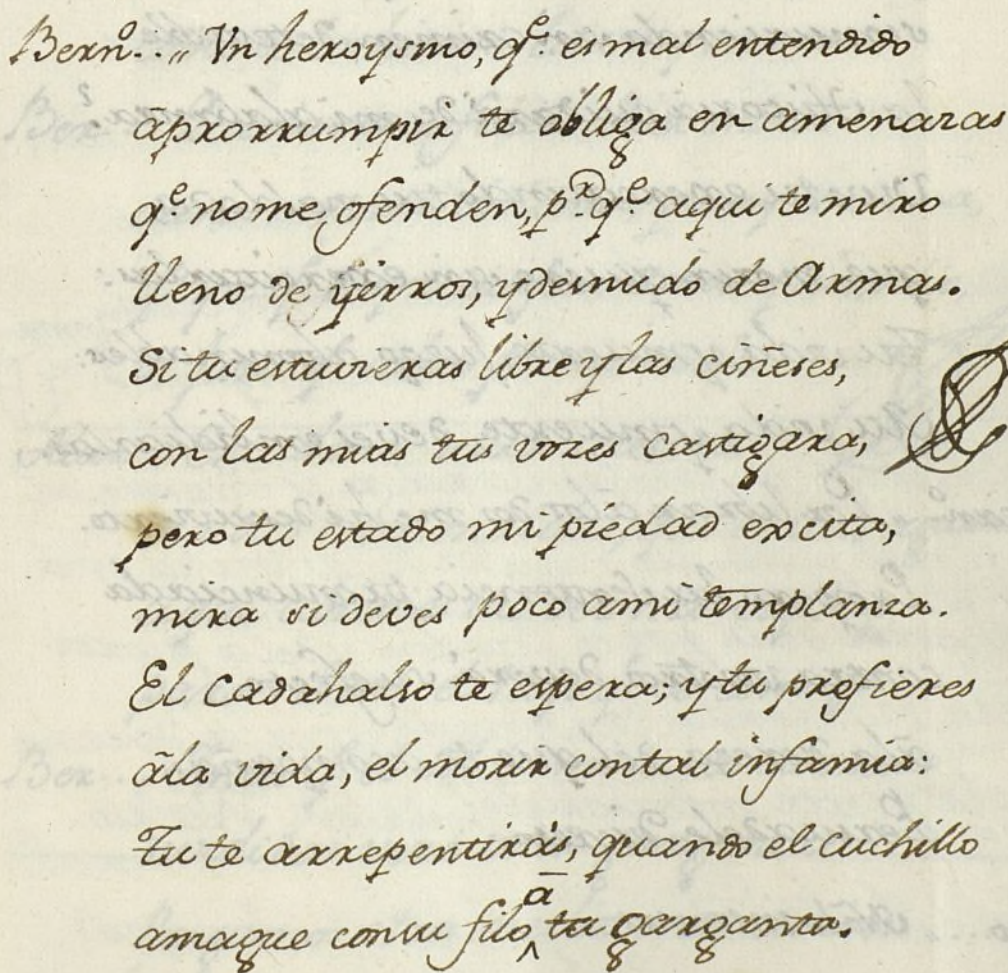 Bern.º.. „ Vn heroysmo, q.e es mal entendido
āprorrumpir te obliga en amenazas
q.e no me ofenden, p.r q.e aqui te miro
lleno de yerros, y desnudo de Armas.
Si tu estuvieras libre y las ciñeses,
con las mias tus vozes castigara,
pero tu estado mi piedad excita,
mira si deves poco ami templanza.
El Cadahalso te espera; y tu profieres
āla vida, el morir contal infamia:
Tu te arrepentirás, quando el cuchillo
ā
amague consu filo ^ tu garganta.